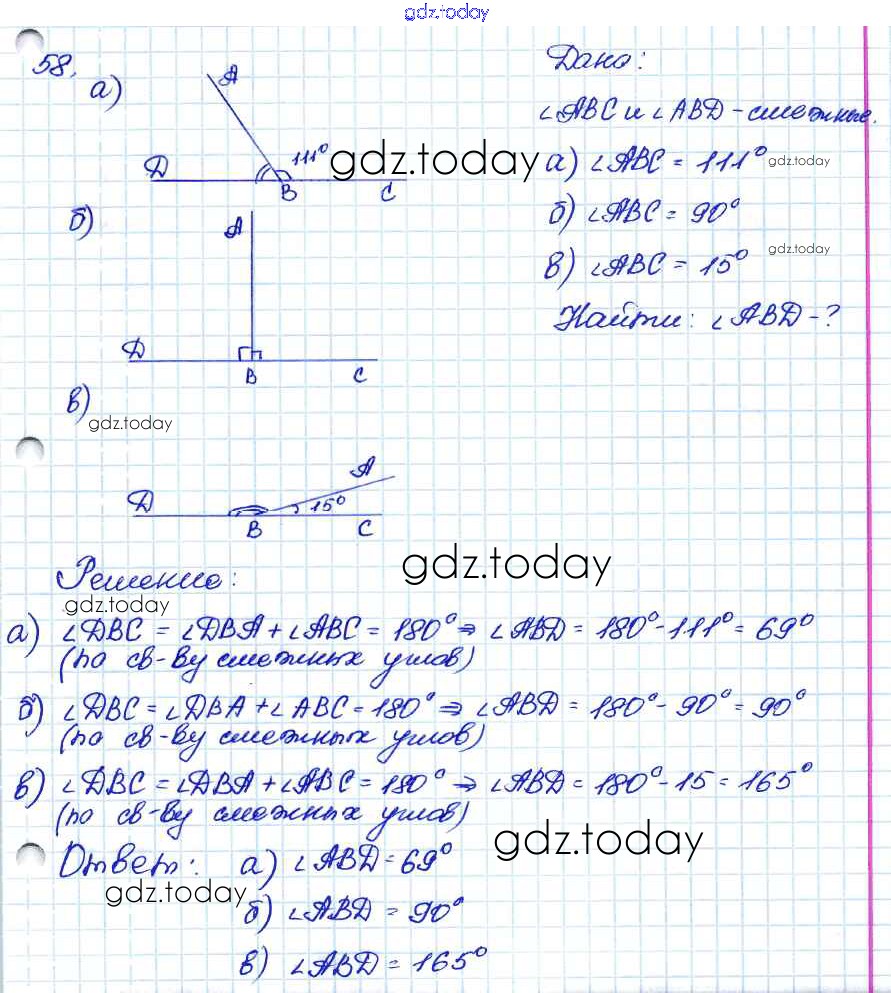 gdz.today
58.
Дано:
а)
А
∠ABC и ∠ABD - смежные.
111°
gdz.today
а) ∠ABC = 111°
gdz.today
D
B
C
б)
А
б) ∠ABC = 90°
в) ∠ABC = 15°
gdz.today
Найти: ∠ABD - ?
D
B
C
в)
gdz.today
А
D
15°
B
C
Решение:
gdz.today
gdz.today
а) ∠DBC = ∠DBA + ∠ABC = 180° ⇒ ∠ABD = 180° - 111° = 69°
(по св-ву смежных углов)
б) ∠DBC = ∠DBA + ∠ABC = 180° ⇒ ∠ABD = 180° - 90° = 90°
(по св-ву смежных углов)
в) ∠DBC = ∠DBA + ∠ABC = 180° ⇒ ∠ABD = 180° - 15 = 165°
(по св-ву смежных углов)
gdz.today
Ответ: а) ∠ABD = 69°
gdz.today
б) ∠ABD = 90°
в) ∠ABD = 165°